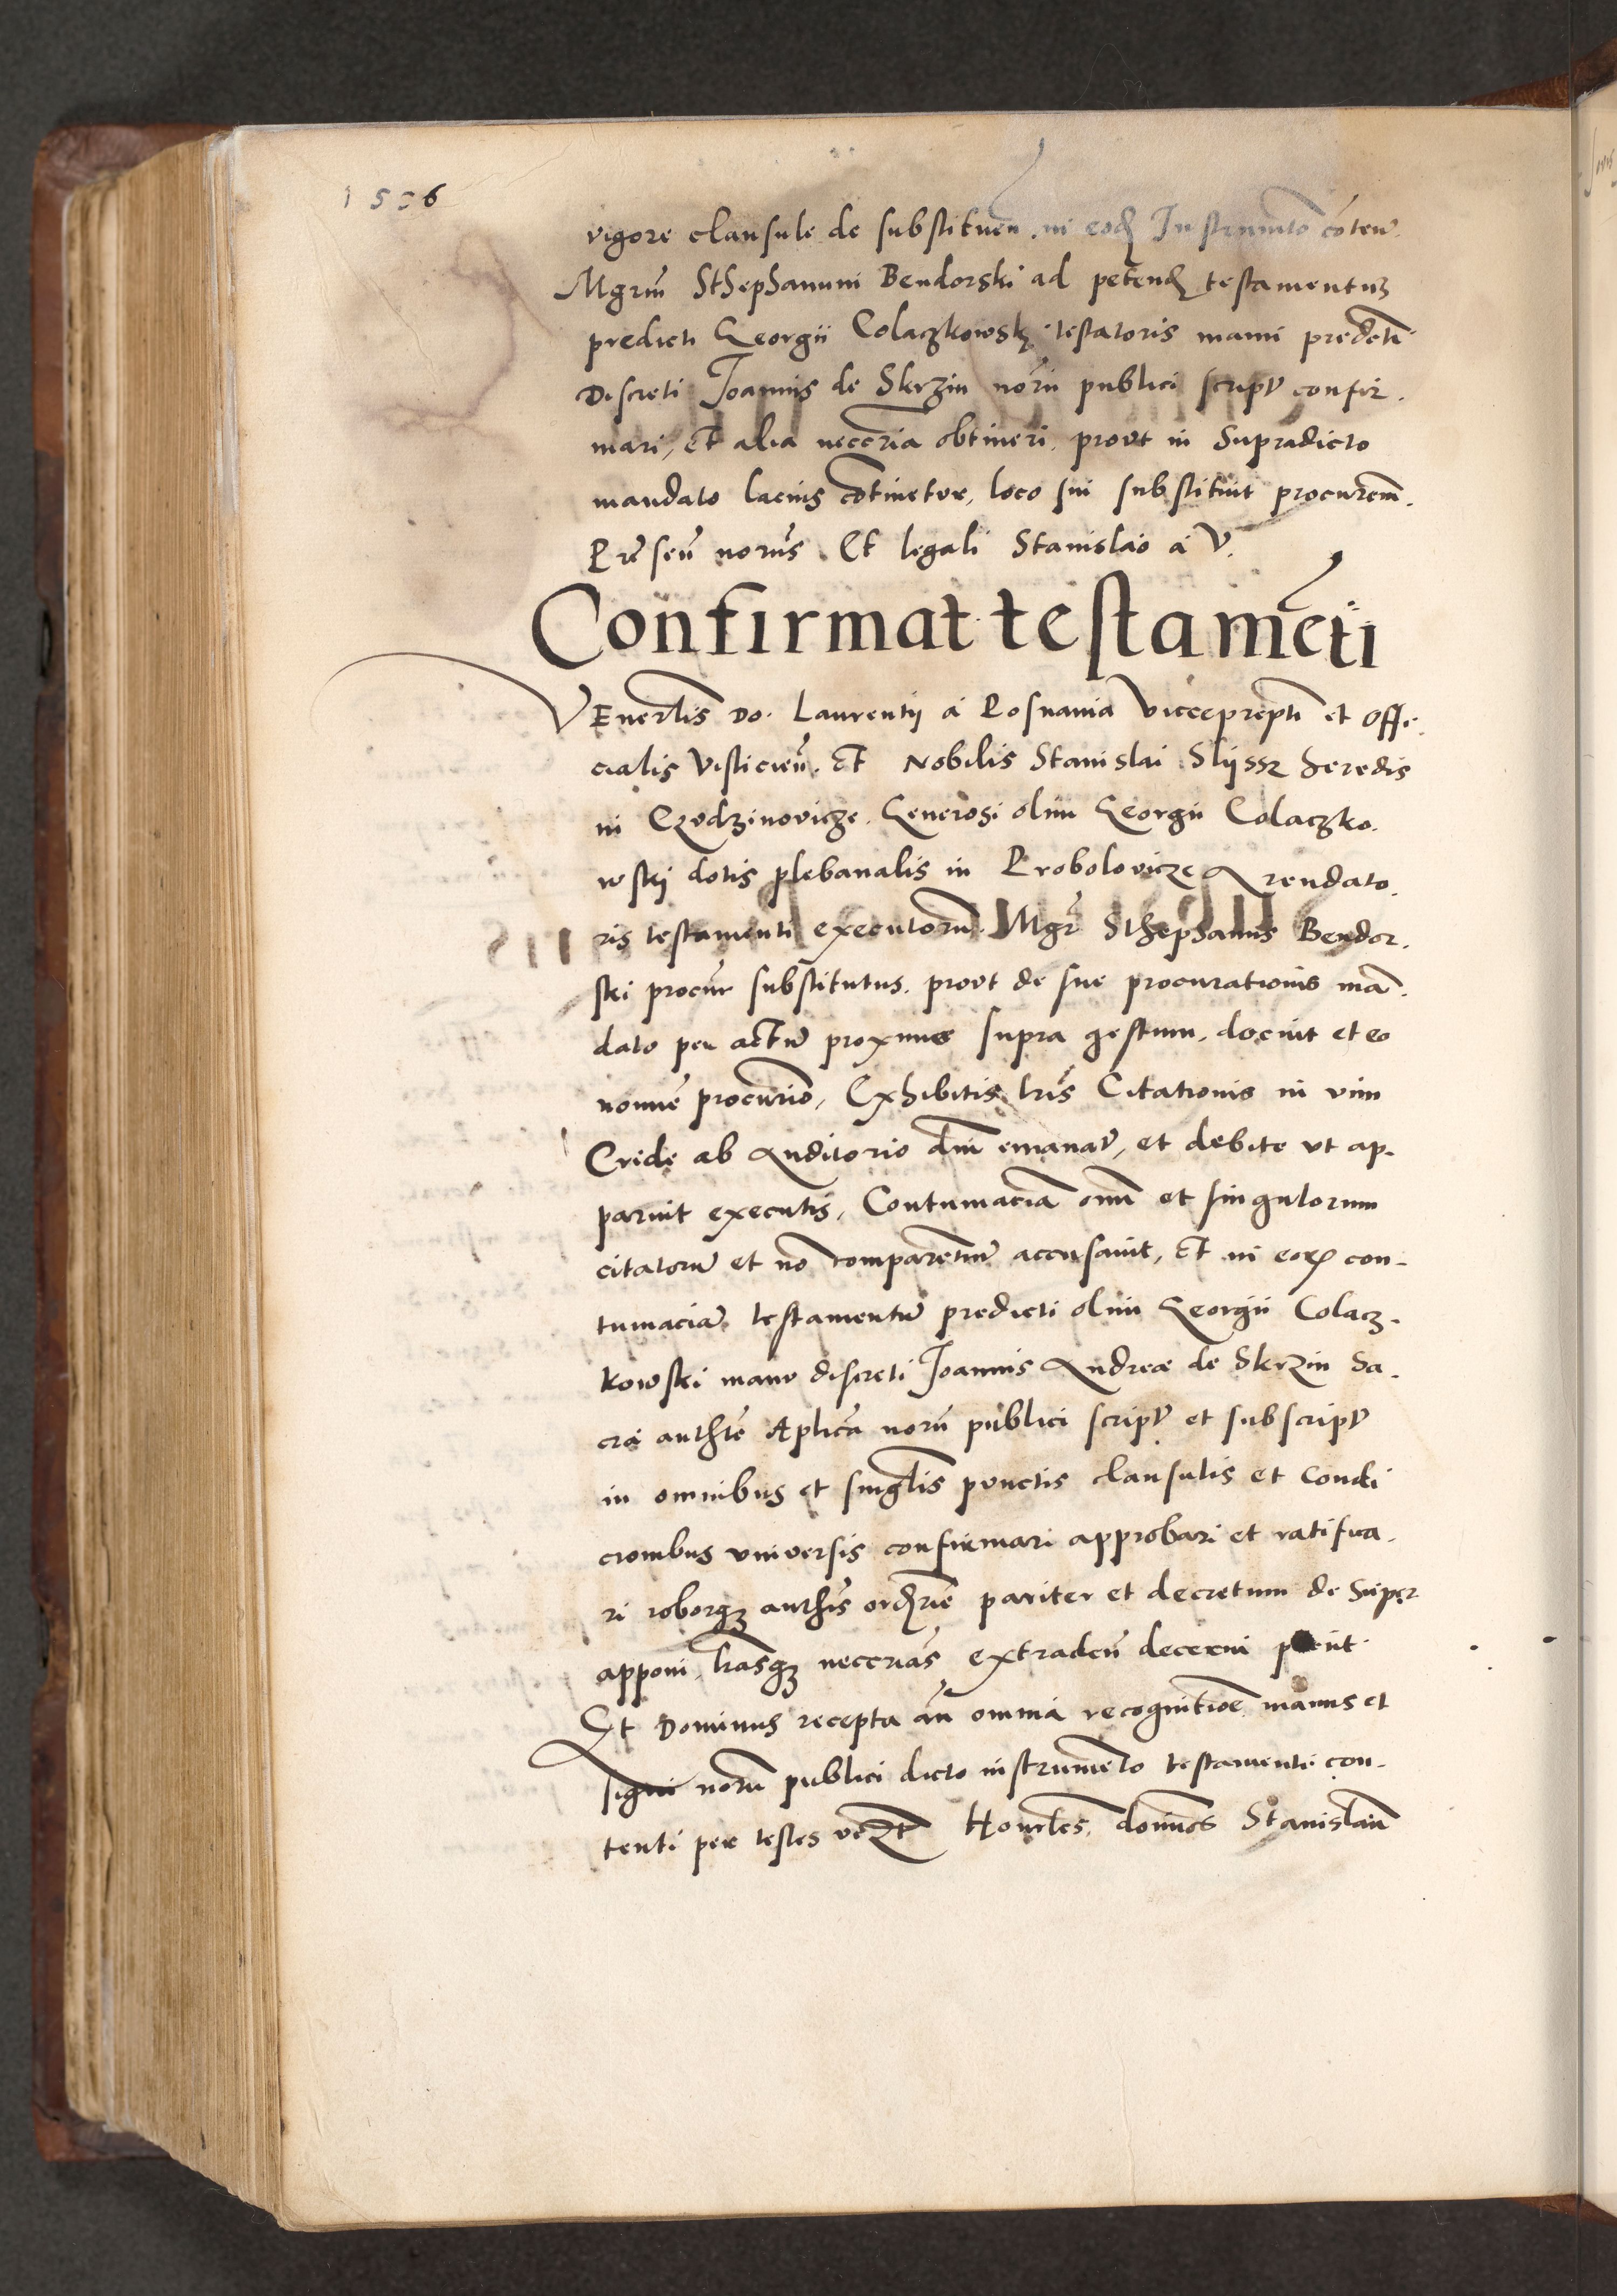 1536
vigore clausule de substituen̄. in eod Instrumēto cōten̄.
Mgrm̄ Sthephanum Bendorski ad petend testamentuʒ
predicti Georgii Colaczkowsk testatoris manu predicti
Discreti Joannis de Skrzin no͞rii publici script confir.
mari, et alia neccr̄ia obtineri. provt in Supradicto
mandato lacius cōtinetur, loco sui substituit procurem̄.
Pn̄te seu͞ norus͞. Et legali Stanislao a V.
Confirmat testamēti
VEnerlis̄ Do. Laurentij a Posnania Vicceprepti et offi.
cialis Visliciēn. Et Nobilis Stanislai Slijssz heredis
in Czudzinovicze. Generosi olim Georgii Colaczko.
wskj dotis plebanalis in Probolovicze Arendato.
ris testamenti executorū. Mgr̄ Sthephanus Bendor.
ski procūr substitutus. provt de sue procurationis mā.
dato per actū proxime supra gestum. docuit et eo
nomiē procurio͞, Exhibitis lris̄ Citationis in vim
Cride ab Auditorio dn̄i emanat, et debite vt ap.
paruit executis, Contumaciā om̄ et singulorum
citatorū et nō comparentiū accusauit, Et in eorꝝ con-
tumaciā testamentū predicti olim Georgii Colacz.
kowski manu discreti Joannis Andreæ de Skrzin Sa.
cra authte͞ Aplica͞ noru͞ publici script et subscript
in omnibus et singlis̄ punctis clausulis et Condi
cionibus vniversis confirmari approbari et ratifica.
ri roborqꝫ authis͞ ordrie͞ pariter et decretum de Super
apponi, lras̄qꝫ neccrias͞ extraden̄ decerni petiit.
Et Dominus recepta an̄ omnia recognitioē manus et
signi noru͞ publici dicto instrumēto testamenti con-
tenti per testes vꝫt Honorles̄. domiōs Stanislaū